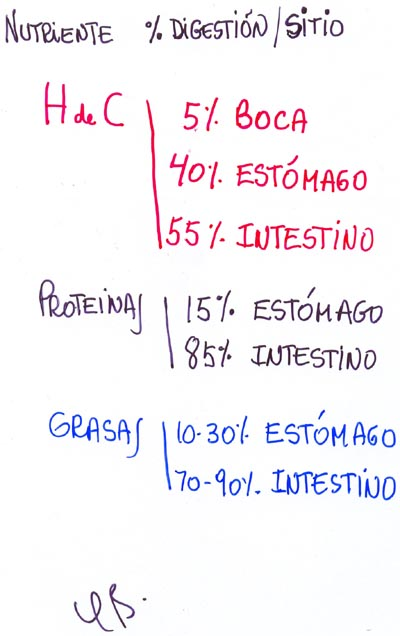 NUTRIENTE % DIGESTIÓN/SITIO
H de C 5% BOCA
40% ESTÓMAGO
55% INTESTINO
PROTEINAS 15% ESTÓMAGO
85% INTESTINO
GRASAS 10-30% ESTÓMAGO
70-90% INTESTINO